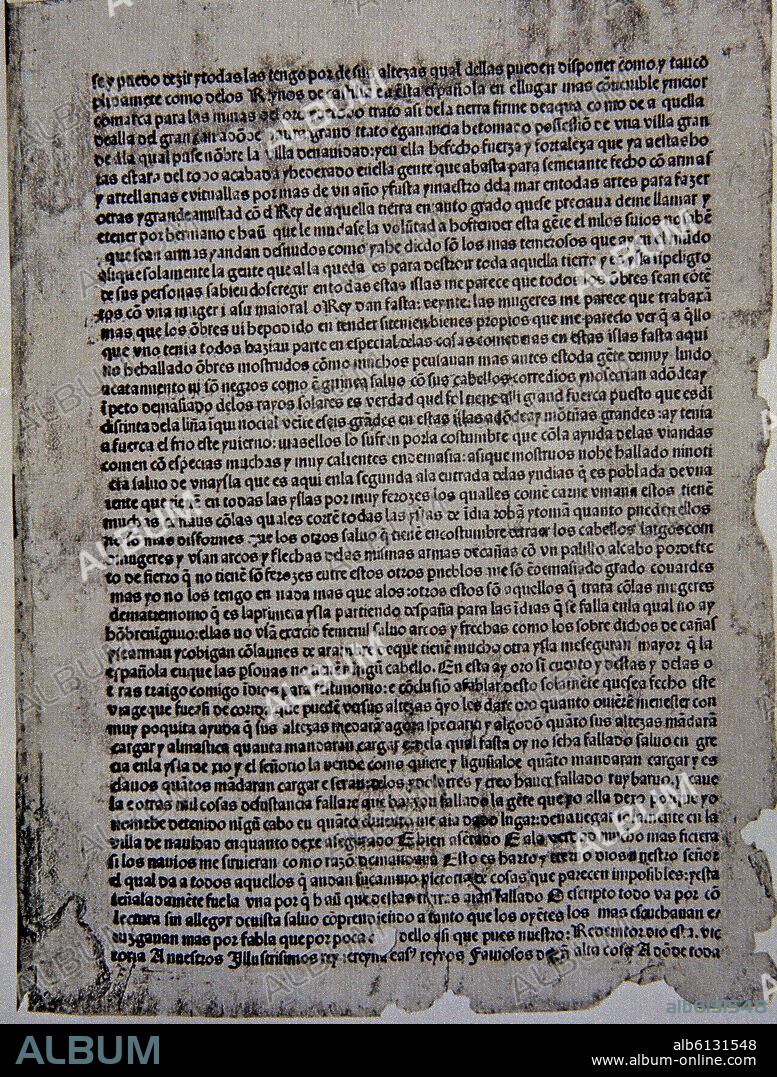 se y puedo dezir y todas las tengo por de sus altezas qual dellas pueden disponer como y tan cõ
como delos Reynos de en esta española en el lugar mas cõuenible y meior
comarca para las minas del oro trato asi dela tierra firme de aqua como de a quella
de alla del gran can adõde grand trato e ganancia he tomado possessiõ de vna villa gran
de ala qual puse nõbre la villa de nauidad: y en ella he fecho fuerza y fortaleza que ya a estas ho
ras estara del todo acabada y he dexado en ella gente que abasta para semeiante fecho cõ armas
y artellarias e vituallas por mas de vn año y fusta y maestro dela mar en todas artes para fazer
otras y grande amistad cõ el Rey de aquella tierra en tanto grado que se preciaua de me llamar y
e tener por hermano e haũ que le mudase la volũtad a hoffender esta gẽte el ni los suios no sabẽ
que sean armas y andan desnudos como ya he dicdo sõ los mas temerosos que ay en el mũdo
asi que solamente la gente que alla queda es para destroir toda aquella tierra y es ysla si peligro
de sus personas sabiendo se regir en todas estas islas me parece que todos los õbres sean cõtẽ
tos cõ vna muger i a su maioral o Rey dan fasta: veynte: las mugeres me parece que trabaxã
mas que los õbres ni he podido entender si tenien bienes propios que me parecio ver q̃ a q̃llo
que vno tenia todos hazian parte en especial delas cosas comederas en estas islas fasta aqui
no he hallado õbres mostrudos cõmo muchos pensauan mas antes es toda gẽte de muy lindo
acatamiento ni sõ negros como ẽ guinea saluo cõ sus cabellos corredios y no se crian adõde ay
ipeto demasiado delos rayos solares es verdad quel sol tiene alli grand fuerca puesto que es di
distinta de la liña iquinocial veite e seis grãdes en estas islas adõde ay mõtñas grandes: ay tenia
a fuerca el frio este yuierno: mas ellos lo sufren por la costumbre que cõ la ayuda delas viandas
comen cõ especias muchas y muy calientes en demasia: asi que mostruos no he hallado ni noti
cia saluo de vna ysla que es aqui en la segunda ala entrada delas yndias q̃ es poblada de vna
iente que tienẽ en todas las yslas por muy ferozes los qualles comẽ carne vmana estos tienẽ
muchas canaus cõ las quales corrẽ todas las yslas de ĩdia robã y tomã quanto pueden ellos
no sõ mas disformes que los otros saluo q̃ tienẽ en costumbre de traer los cabellos largos com
o mugeres y vsan arcos y flechas delas mismas armas de cañas cõ vn palillo al cabo por defec
to de fierro q̃ no tienẽ sõ ferozes entre estos otros pueblos que sõ ẽ demasiado grado couardes
mas yo no los tengo en nada mas que alos otros estos sõ aquellos q̃ trata cõ las mugeres
de matremomo q̃ es la primera ysla partiendo despaña para las ĩdias q̃ se falla en la qual no ay
hõbre niguuo: ellas no vsã exercio femenil saluo arcos y frechas como los sobre dichos de cañas
y se arman y cobigan cõ launes de arambre de que tienẽ mucho otra ysla me seguran mayor q̃ la
española en que las psouas no tienẽ nigũ cabello. En esta ay oro sĩ cuento y destas y delas o
tras traigo comigo ĩdios para testimonio: e cõclusiõ a fablar desto solamẽte que se a fecho este
viage que fue asi de corrida que puedẽ ver sus altezas q̃ yo les dare oro quanto ouierẽ menester con
muy poquita ayuda q̃ sus altezas me darã agora speciaria y algodõ quãto sus altezas mãdarã
cargar y almastica quanta mandaran cargar e dela qual fasta oy no se ha fallado saluo en gre
cia en la ysla de xio y el señorio la uende como quiere y liguñaloe quãto mandaran cargar y es
clauos quãtos mãdaran cargar e seran delos ydolatres y creo hauer fallado ruybaruo y cane
la e otras mil cosas de sustancia fallare que hauran fallado la gẽte que yo alla dexo porque yo
no me he detenido nigũ cabo en quãto el viento me aia dado lugar: de nauegar solamente en la
villa de nauidad en quanto dexe asegurado e bien asẽtado E ala verdad mucho mas ficiera
si los nauios me siruieran como razõ demandaua Esto es harto y eterno dios nuestro señor
el qual da a todos aquellos q̃ andan su camino victoria de cosas que parecen imposibles: y esta
señaladamẽte fue la vna por q̃ haũ que destas tierras aian fallado O escripto todo va por cõ
lectura sin allegar de vista saluo cõprendiendo a tanto que los oyẽtes los mas escuchauan e
iuzgauan mas por fabla que por poca c dello asi que pues nuestro: Redemtor dio esta vic
toria A nuestros Illustrisimos rey e reyna e a sus reynos Famosos de tã alta cosa A dõde toda
ALBUM
alb6131548
www.album-online.com